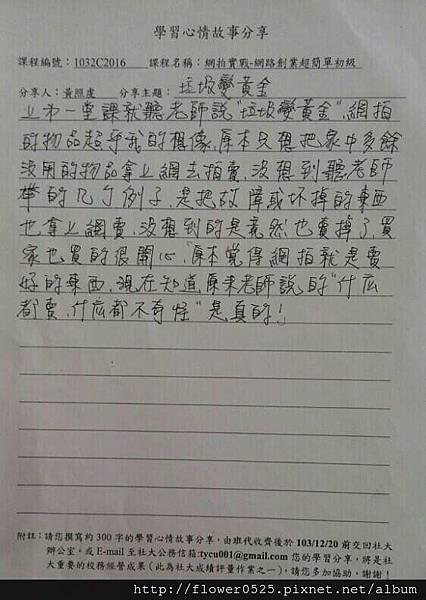 學習心情故事分享
課程編號：1032C2016　課程名稱：網拍實戰-網路創業超簡單初級
分享人：黃照虔　分享主題：垃圾變黃金
上第一堂課就聽老師說"垃圾變黃金"網拍
的物品超乎我的想像,原本只想把家中多餘
沒用的物品拿上網去拍賣,沒想到聽老師
舉的几个例子,是把故障或坏掉的東西
也拿上網賣,沒想到的是竟然也賣掉了,買
家也買的很開心,原本覺得網拍就是賣
好的東西,現在知道,原來老師說的"什庅
都賣,什庅都不奇怪"是真的!
附註：請您撰寫約 300 字的學習心情故事分享，由班代收齊後於 103/12/20 前交回社大
辦公室，或 E-mail 至社大公務信箱:tycu001@gmail.com 您的學習分享，將是社
大重要的校務經營成果（此為社大成績評量作業之一），請您多加協助，謝謝！
http://flower0525.pixnet.net/album